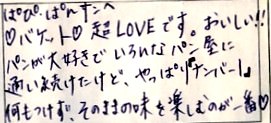 ぱぴ.ぱん.サンへ
♡バケット♡ 超LOVEです。おいしい!!
パンが大好きで いろんなパン屋に
通い続けたけど、やっぱり"ナンバー1"
何もつけず、そのままの味を楽しむのが一番♡